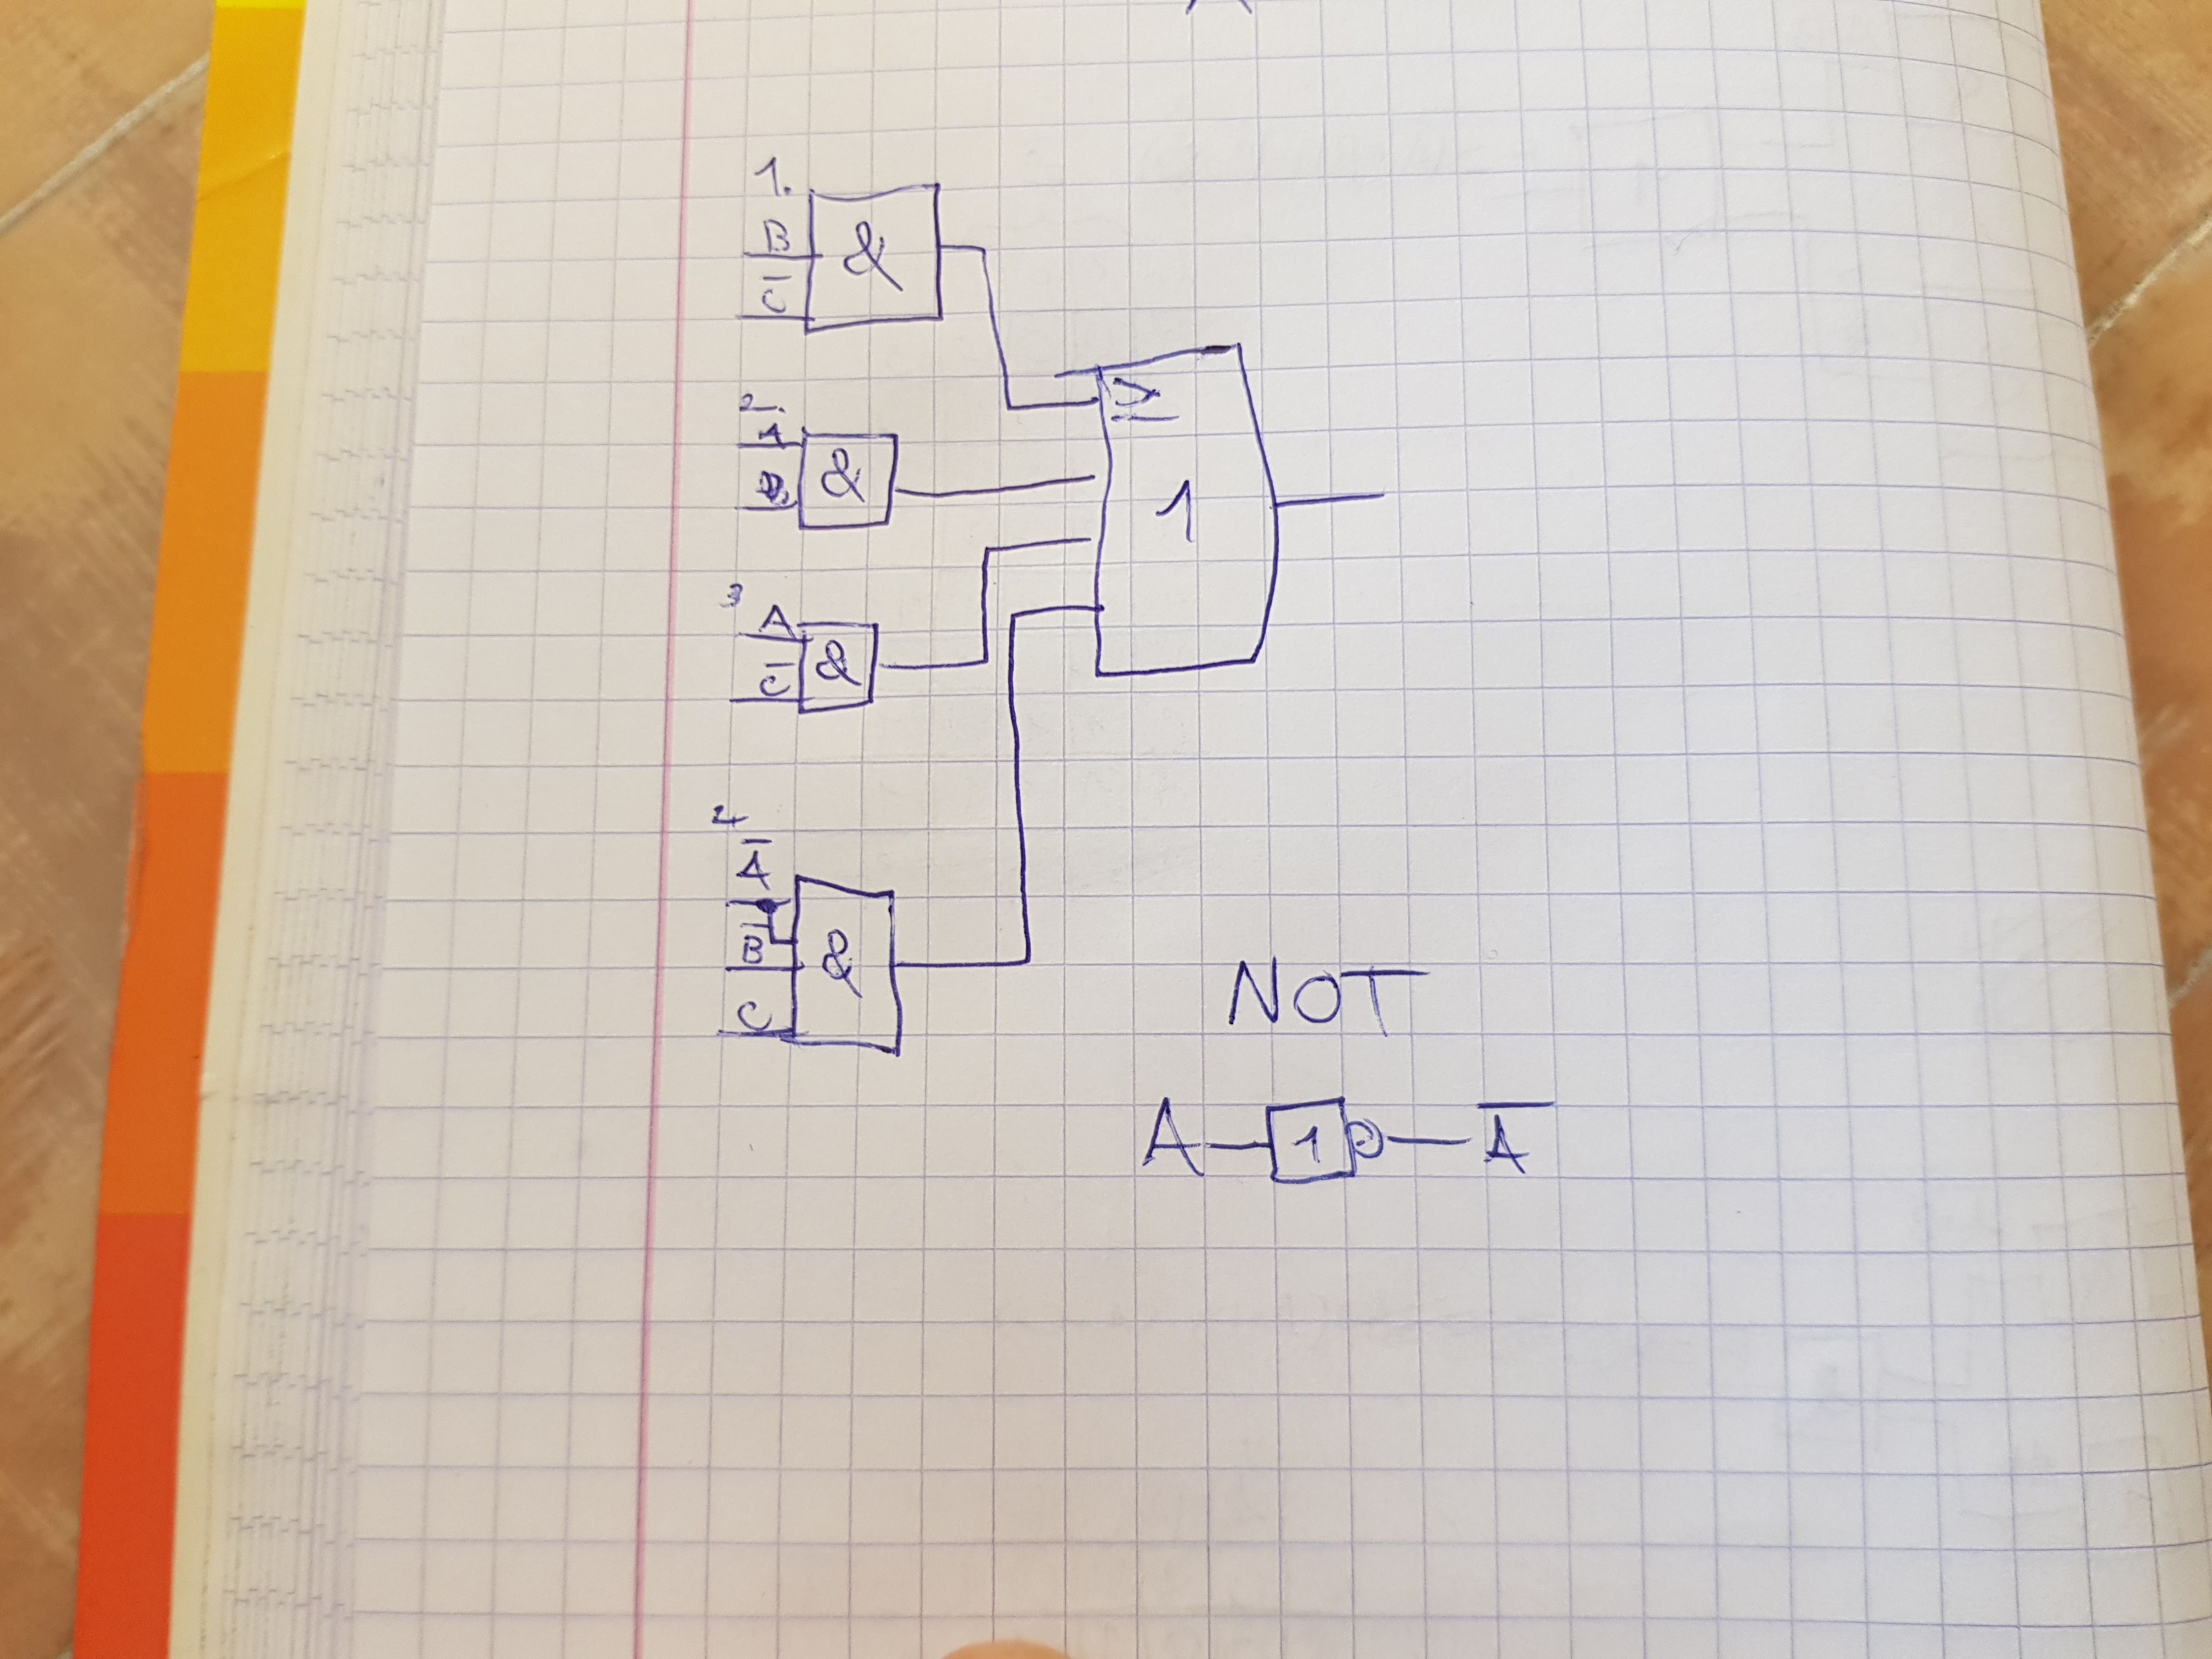 1.
B
C̅
&
≥
1
2.
A
&
3
A
C̅
&
A̅
B̅
C
&
NOT
A 1 A̅